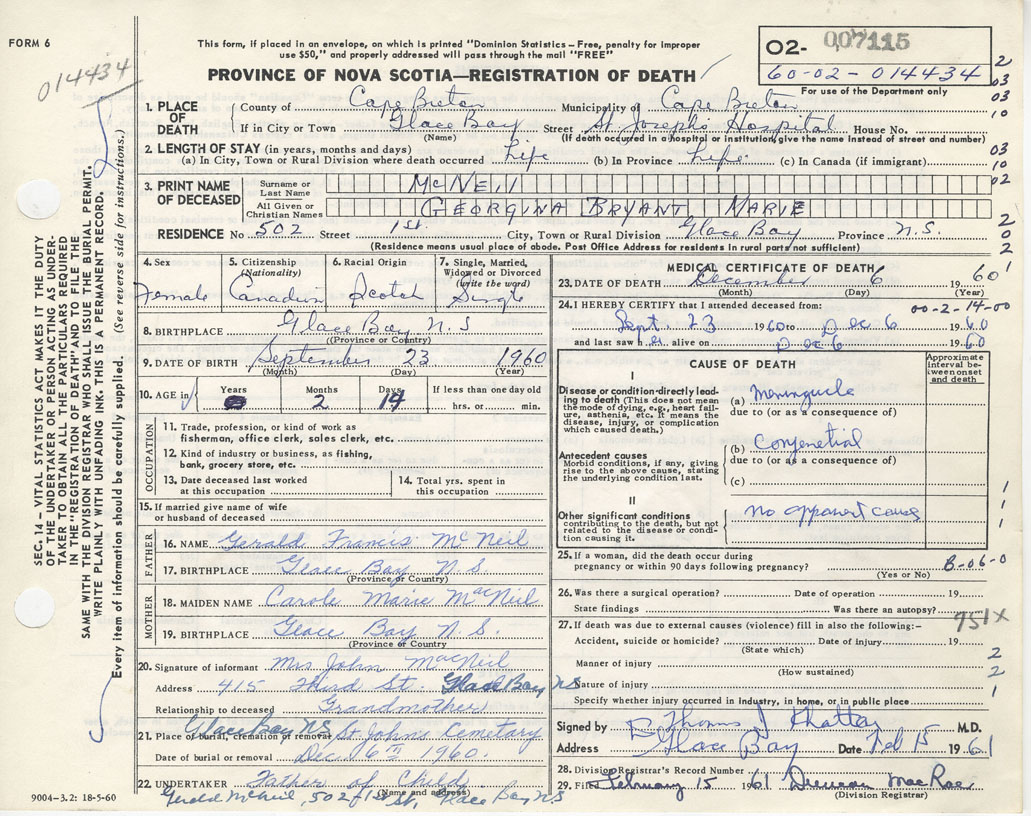 FORM 6
014434
This form, if placed in an envelope, on which is printed "Dominion Statistics – Free, penalty for improper
use $50," and properly addressed will pass through the mail "FREE"
PROVINCE OF NOVA SCOTIA—REGISTRATION OF DEATH
02- 007115
60-02-014434
For use of the Department only
2
03
03
10
1. PLACE OF DEATH
County of Cape Breton Municipality of Cape Breton
If in City or Town Glace Bay Street St. Josephs Hospital House No.
(Name) (If death occurred in a hospital or institution, give the name instead of street and number)
2. LENGTH OF STAY (in years, months and days)
(a) In City, Town or Rural Division where death occurred Life (b) In Province Life (c) In Canada (if immigrant)
03
10
3. PRINT NAME OF DECEASED
Surname or Last Name McNeil
02
All Given or Christian Names Georgina Bryant Marie
2
RESIDENCE No 502 Street 1st City, Town or Rural Division Glace Bay Province N.S.
0
(Residence means usual place of abode. Post Office Address for residents in rural parts not sufficient)
2
4. Sex
Female
5. Citizenship (Nationality)
Canadian
6. Racial Origin
Scotch
7. Single, Married, Widowed or Divorced (write the word)
Single
8. BIRTHPLACE Glace Bay N.S
(Province or Country)
9. DATE OF BIRTH September 23 1960
(Month) (Day) (Year)
10. AGE in
Years 0
Months 2
Days 14
If less than one day old
hrs. or min.
OCCUPATION
11. Trade, profession, or kind of work as
fisherman, office clerk, sales clerk, etc.
12. Kind of industry or business, as fishing,
bank, grocery store, etc.
13. Date deceased last worked
at this occupation
14. Total yrs. spent in
this occupation
15. If married give name of wife
or husband of deceased
FATHER
16. NAME Gerald Francis McNeil
17. BIRTHPLACE Glace Bay N.S.
(Province or Country)
MOTHER
18. MAIDEN NAME Carole Marie MacNeil
19. BIRTHPLACE Glace Bay N.S.
(Province or Country)
20. Signature of informant Mrs John MacNeil
Address 415 Third St. Glace Bay NS
Relationship to deceased Grandmother
Glace Bay NS
21. Place of burial, cremation or removal St. Johns Cemetary
Date of burial or removal Dec 6th 1960.
22. UNDERTAKER Father of Child
(Name and address)
Gerald McNeil, 502 1st St, Glace Bay NS
9004-3.2: 18-5-60
MEDICAL CERTIFICATE OF DEATH
23. DATE OF DEATH December 6 1960
(Month) (Day) (Year)
00-2-14-00
24. I HEREBY CERTIFY that I attended deceased from:
Sept. 23 1960 to Dec 6 1960
and last saw her alive on Dec 6 1960
CAUSE OF DEATH
Approximate interval between onset and death
I
Disease or condition directly leading to death (This does not mean the mode of dying, e.g., heart failure, asthenia, etc. It means the disease, injury, or complication which caused death.)
(a)
due to (or as a consequence of)
Antecedent causes
Morbid conditions, if any, giving rise to the above cause, stating the underlying condition last.
(b) Congenetial
due to (or as a consequence of)
(c)
1
II
Other significant conditions
contributing to the death, but not related to the disease or condition causing it.
no apparent cause
1
1
25. If a woman, did the death occur during
pregnancy or within 90 days following pregnancy?
(Yes or No)
B-06-0
26. Was there a surgical operation? Date of operation 19
State findings Was there an autopsy?
751X
27. If death was due to external causes (violence) fill in also the following:-
Accident, suicide or homicide? Date of injury 19
(State which)
2
Manner of injury
(How sustained)
2
Nature of injury
1
Specify whether injury occurred in Industry, in home, or in public place
Signed by Thomas J Khattar M.D.
Address Glace Bay Date Feb 15 1961
28. Division Registrar's Record Number
29. Filed February 15 1961 Duncan MacRae
(Division Registrar)
SEC. 14 – VITAL STATISTICS ACT MAKES IT THE DUTY
OF THE UNDERTAKER OR PERSON ACTING AS UNDER-
TAKER TO OBTAIN ALL THE PARTICULARS REQUIRED
IN THE "REGISTRATION OF DEATH" AND TO FILE THE
SAME WITH THE DIVISION REGISTRAR WHO SHALL ISSUE THE BURIAL PERMIT.
WRITE PLAINLY WITH UNFADING INK. THIS IS A PERMANENT RECORD.
Every item of information should be carefully supplied. (See reverse side for instructions.)